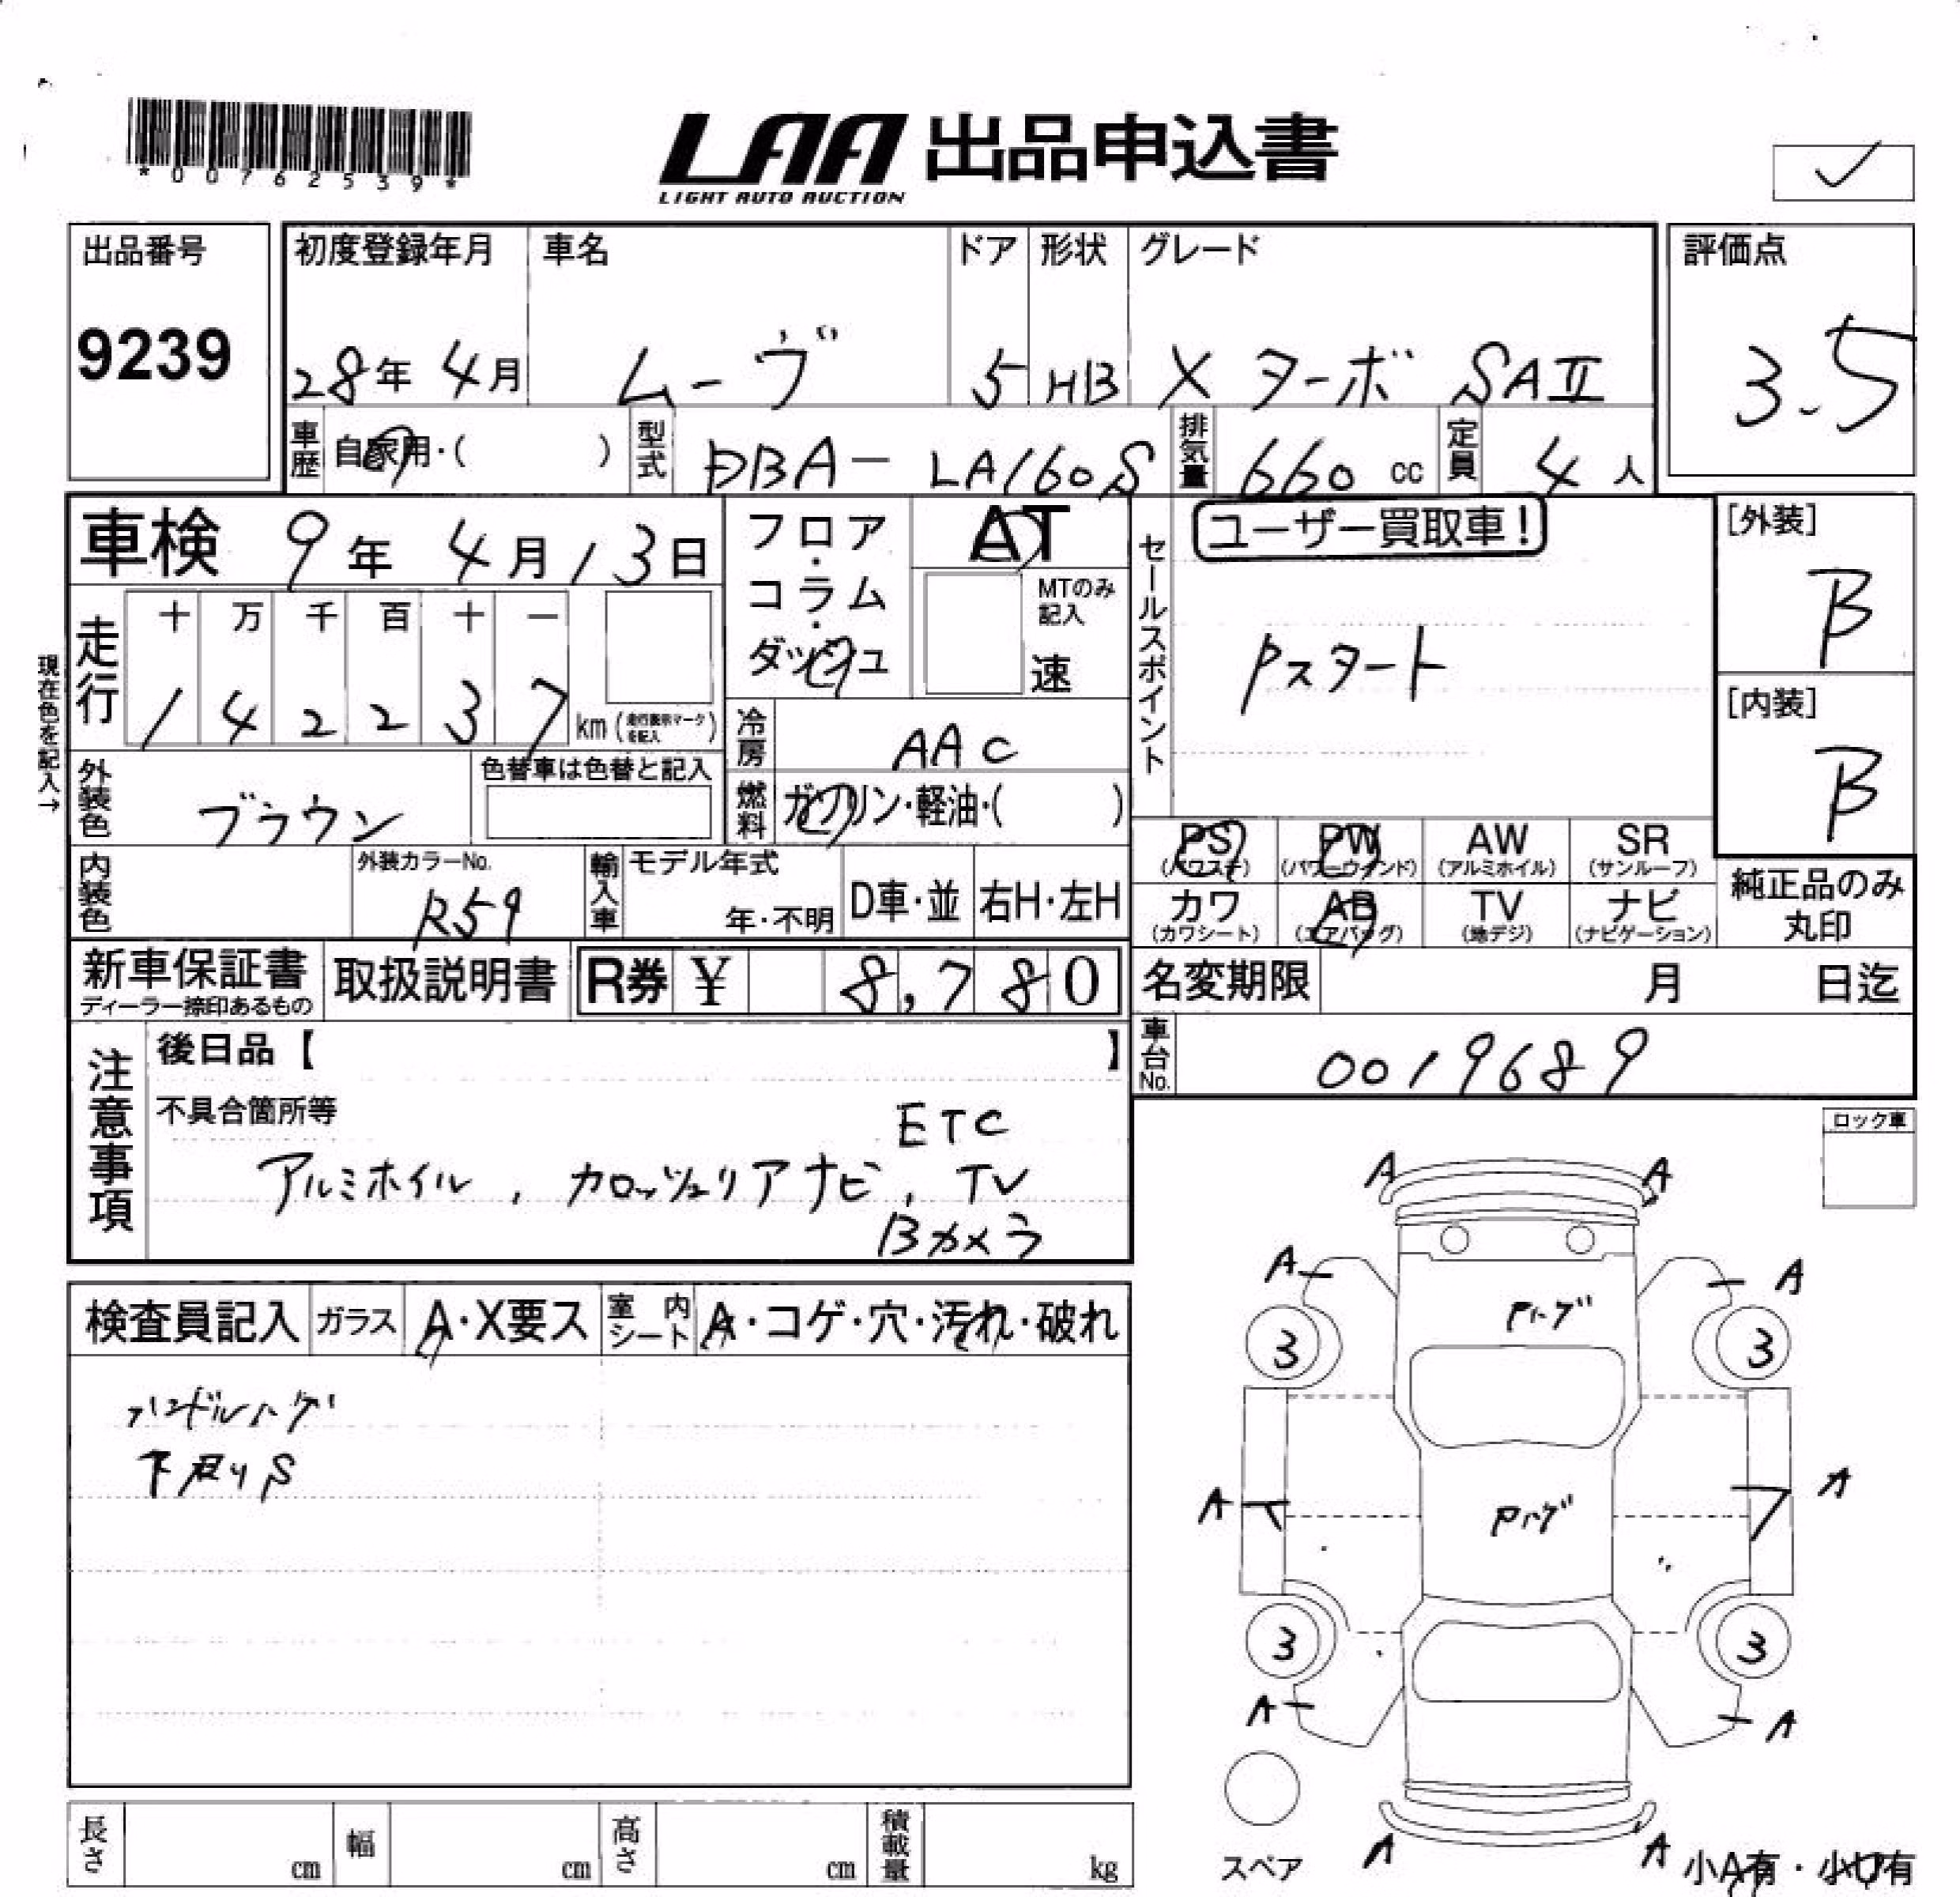 *00762539*
LAA 出品申込書
LIGHT AUTO AUCTION
出品番号
9239
初度登録年月
28年 4月
車名
ムーヴ
ドア
5
形状
HB
グレード
X ターボ SAⅡ
評価点
3.5
車歴
自家用・( )
型式
DBA-LA160S
排気量
660 cc
定員
4 人
車検 9年 4月13日
現在色を記入→
走行
十 万 千 百 十 一
1 4 2 2 3 7 km (走行表示マークを記入)
フロア・コラム・ダッシュ
AT
MTのみ記入
速
冷房
AAC
燃料
ガソリン・軽油・( )
外装色
ブラウン
色替車は色替と記入
内装色
外装カラーNo.
R59
輸入車
モデル年式
年・不明
D車・並
右H・左H
セールスポイント
ユーザー買取車!
Pスタート
[外装]
B
[内装]
B
PS (パワステ)
PW (パワーウインド)
AW (アルミホイル)
SR (サンルーフ)
カワ (カワシート)
AB (エアバッグ)
TV (地デジ)
ナビ (ナビゲーション)
純正品のみ丸印
新車保証書
ディーラー捺印あるもの
取扱説明書
R券 ¥ 8,780
名変期限 月 日迄
車台No.
0019689
注意事項
後日品【 】
不具合箇所等
ETC
アルミホイル, カロッツェリアナビ, TV
Bカメラ
ロック車
検査員記入
ガラス
A・X要ス
室内シート
A・コゲ・穴・汚れ・破れ
ハンドルハゲ
下廻りS
A A
A A
Pハゲ
3 3
A A
Pハゲ
3 3
A A
スペア
A A
小A有・小U有
長さ cm
幅 cm
高さ cm
積載量 kg